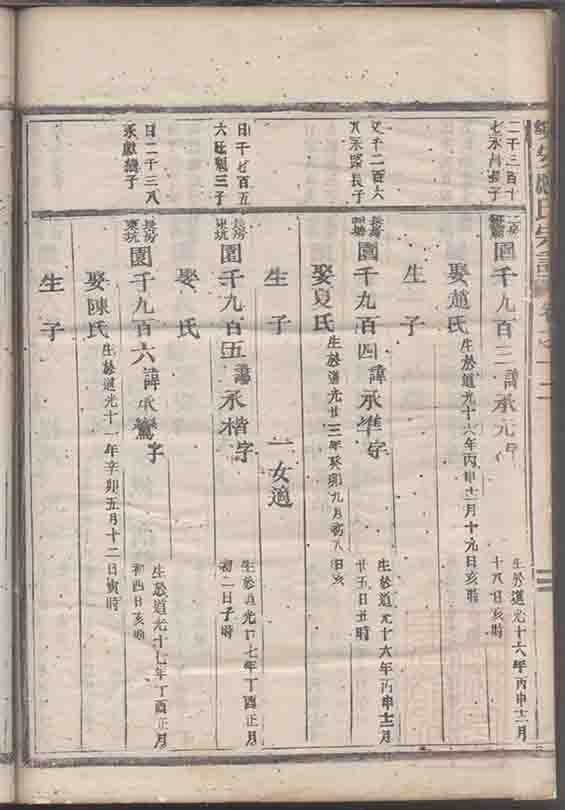 氏宗譜
二千三百十
七永昌長子
園千九百三諱承元字
生於道光十六年丙申十二月
十八日亥時
娶趙氏
生於道光十六年丙申十二月十九日亥時
生子
千二百六
永路長子
長房
園千九百四諱承準字
生於道光十六年丙申十二月
廿五日丑時
娶夏氏
生於道光廿三年癸卯九月初八日亥
生子 一女適
日千七百五
六旺朝三子
長房
東坑
園千九百五諱承楷字
生於道光十七年丁酉正月
初二日子時
娶 氏
生子
日二千三八
永獻繼子
長房
東坑
園千九百六諱承鸞字
生於道光十七年丁酉正月
初四日亥時
娶陳氏
生於道光十一年辛卯五月十二日寅時
生子